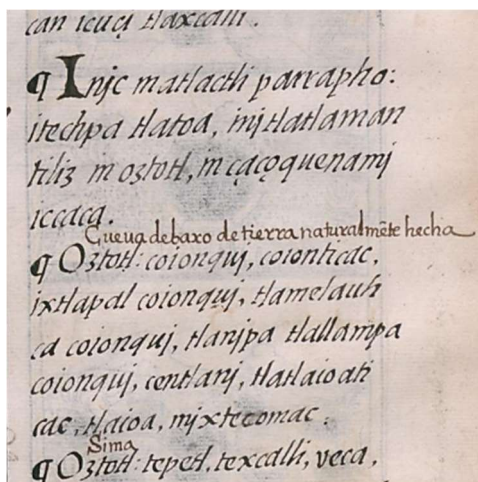 can icuçi tlaxcalli.
¶ Injc matlactli parrapho:
itechpa tlatoa, injtlatlaman
tiliz in oztotl, in çaçoquenamj
iccaca.
Cueua debaxo de tierra naturalmēte hecha
¶ Oztotl: coionquj, coionticac,
ixtlapal coionquj, tlamelauh
ca coionquj, tlanjpa tlallampa
coionquj, centlanj, tlatlaioati
cac, tlaioa, mjxtecomac.
Sima
¶ Oztotl: tepetl, texcalli, veca,